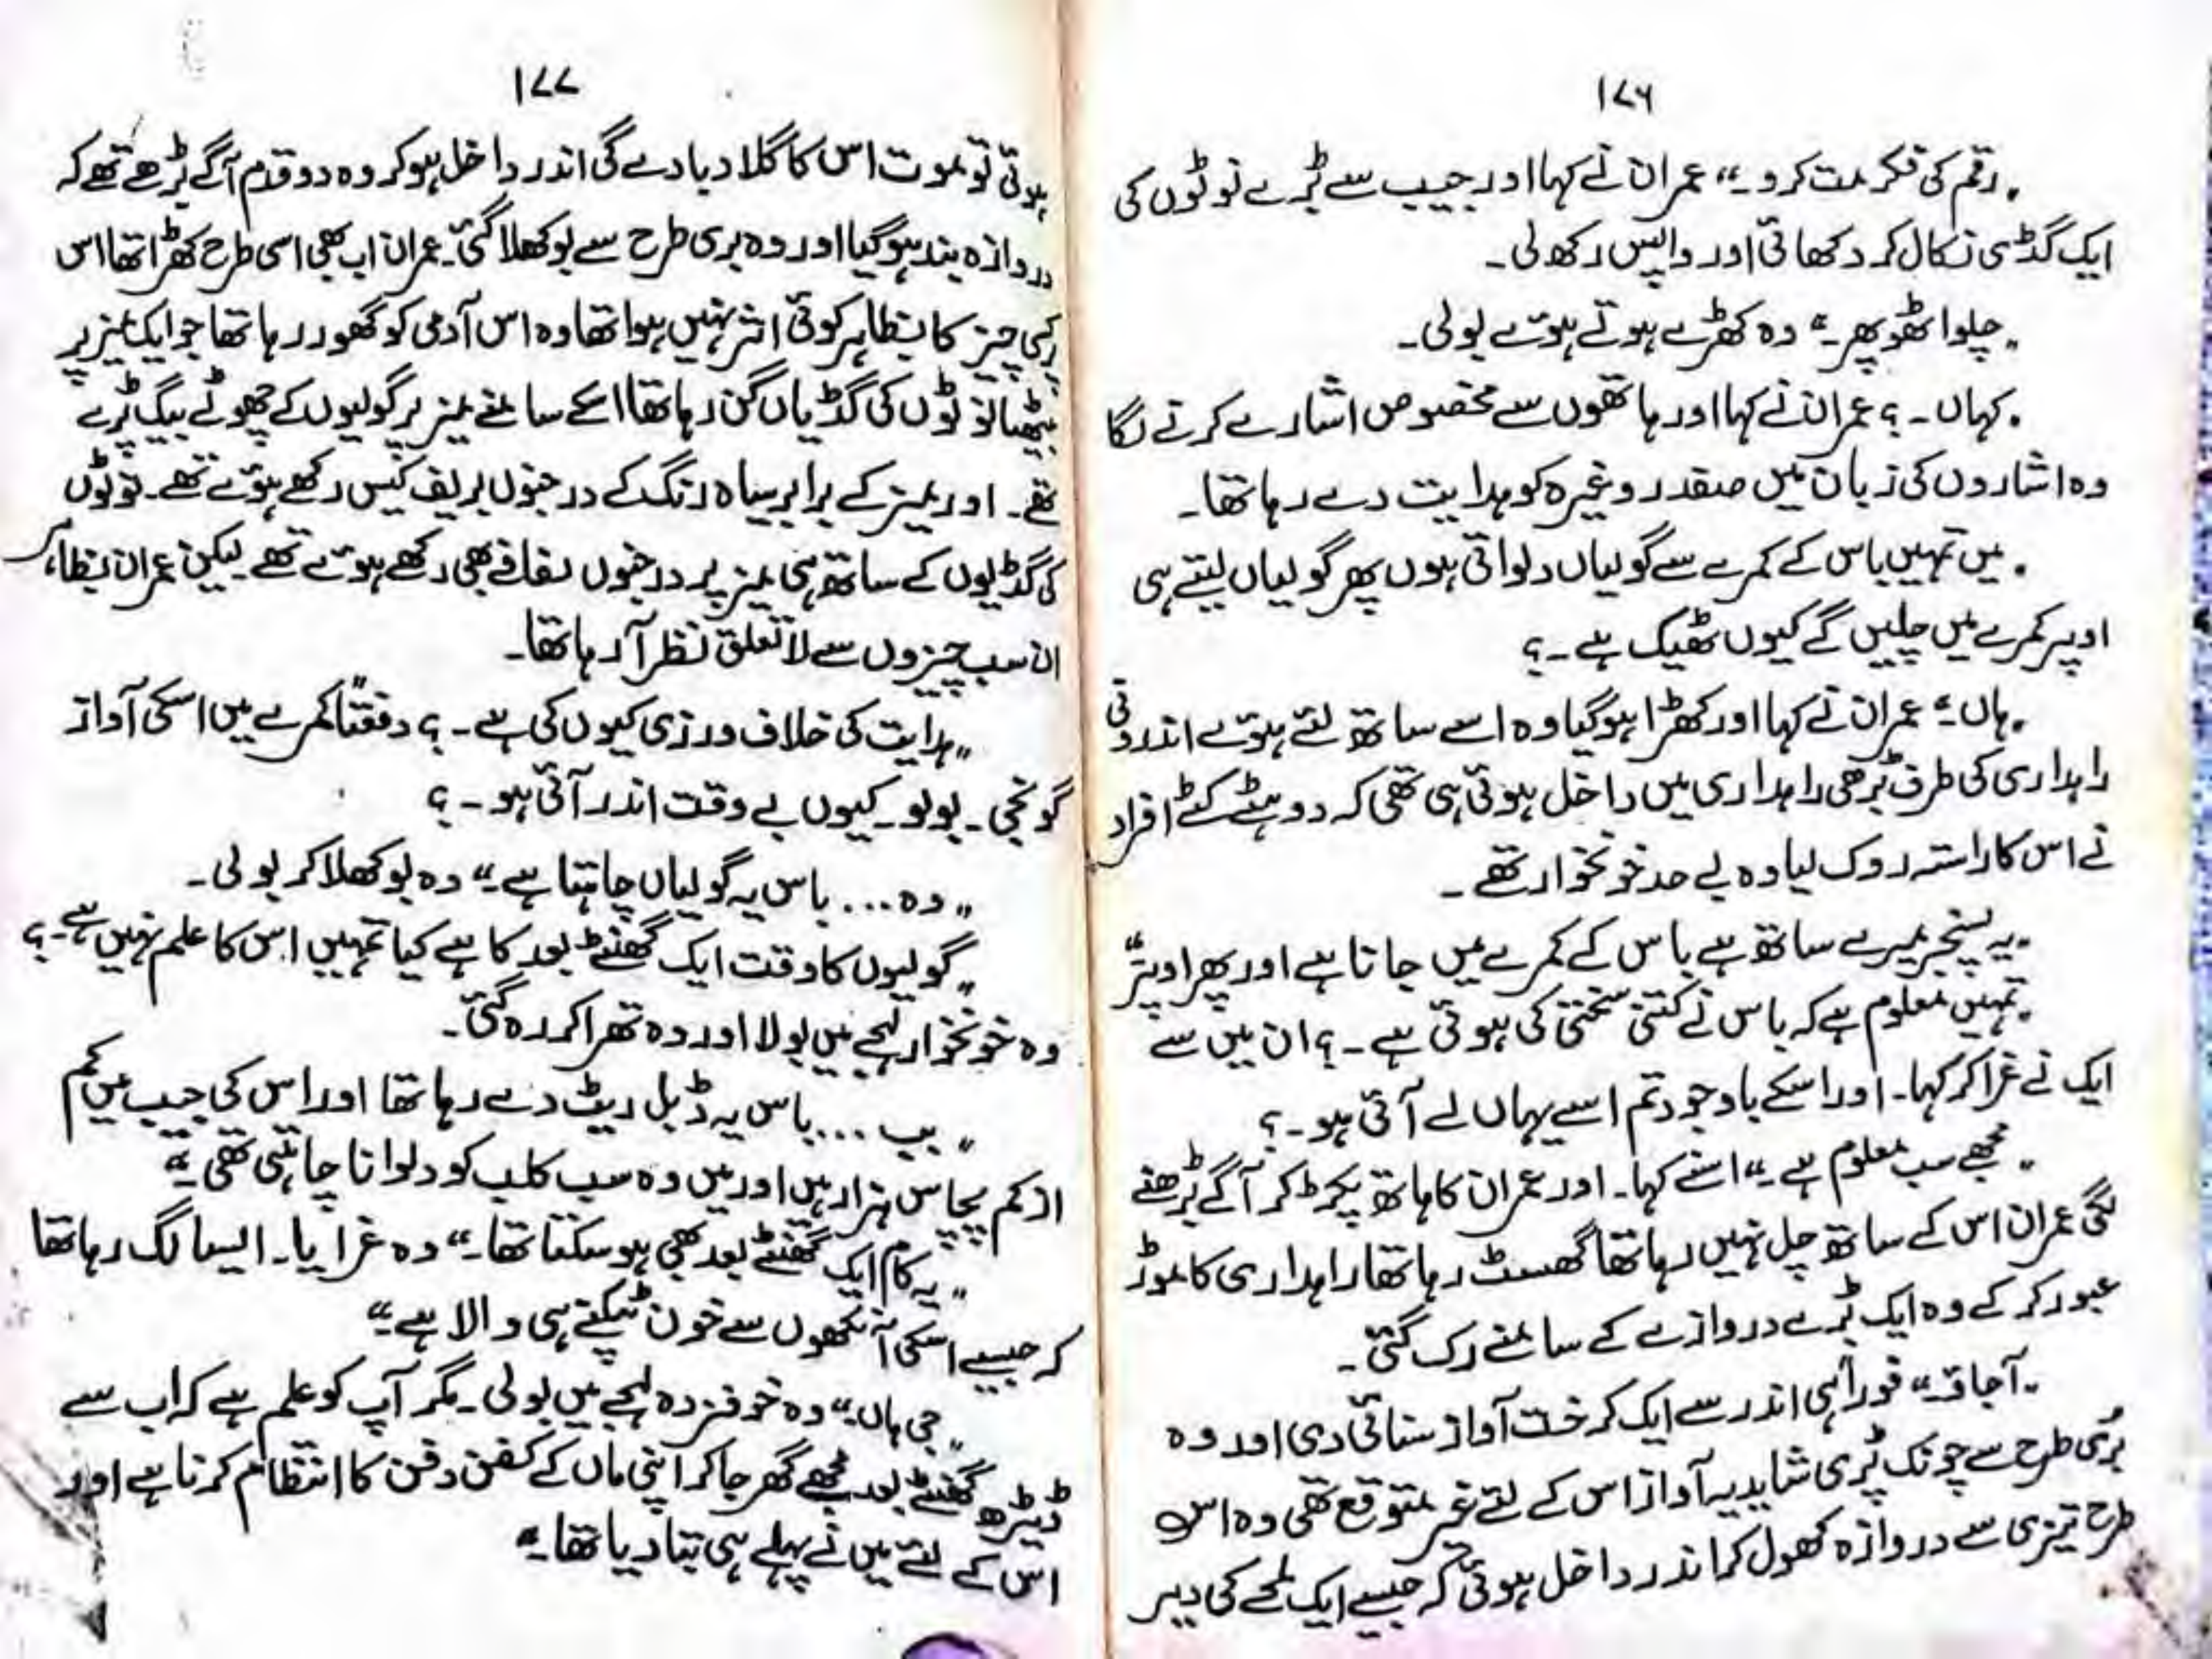 ۱۷۶
"رقم کی فکر مت کرو۔" عمران نے کہا اور جیب سے بڑے نوٹوں کی
ایک گڈی نکال کر دکھائی اور واپس رکھ لی۔
"چلو اٹھو پھر۔" وہ کھڑے ہوتے ہوئے بولی۔
"کہاں۔؟ عمران نے کہا اور ہاتھوں سے مخصوص اشارے کرنے لگا
وہ اشاروں کی زبان میں صفدر وغیرہ کو ہدایت دے رہا تھا۔
"میں تمہیں باس کے کمرے سے گولیاں دلواتی ہوں پھر گولیاں لیتے ہی
اوپر کمرے میں چلیں گے کیوں ٹھیک ہے۔؟
"ہاں۔" عمران نے کہا اور کھڑا ہو گیا وہ اسے ساتھ لئے ہوئے اندرونی
راہداری کی طرف بڑھی راہداری میں داخل ہوئی ہی تھی کہ دو ہٹے کٹے افراد
نے اس کا راستہ روک لیا وہ بے حد خونخوار تھے۔
"یہ پسنجر میرے ساتھ ہے باس کے کمرے میں جانا ہے اور پھر اوپر"
"تمہیں معلوم ہے کہ باس نے کتنی سختی کی ہوئی ہے۔؟ ان میں سے
ایک نے غرا کر کہا۔ اور اسکے باوجود تم اسے یہاں لے آئی ہو۔؟
"مجھے سب معلوم ہے۔" اسنے کہا۔ اور عمران کا ہاتھ پکڑ کر آگے بڑھنے
لگی عمران اس کے ساتھ چل نہیں رہا تھا گھسٹ رہا تھا راہداری کا موڑ
عبور کر کے وہ ایک بڑے دروازے کے سامنے رک گئی۔
"آجاؤ۔" فوراً ہی اندر سے ایک کرخت آواز سنائی دی اور وہ
بری طرح سے چونک پڑی شاید یہ آواز اس کے لئے غیر متوقع تھی وہ اس
طرح تیزی سے دروازہ کھول کر اندر داخل ہوئی کہ جیسے ایک لمحے کی دیر
۱۷۷
ہوئی تو موت اس کا گلا دبا دے گی اندر داخل ہو کر وہ دو قدم آگے بڑھے تھے کہ
دروازہ بند ہو گیا اور وہ بری طرح سے بوکھلا گئی۔ عمران اب بھی اسی طرح کھڑا تھا اس
کسی چیز کا بظاہر کوئی اثر نہیں ہوا تھا وہ اس آدمی کو گھور رہا تھا جو ایک میز پر
بیٹھا نوٹوں کی گڈیاں گن رہا تھا اسکے سامنے میز پر گولیوں کے چھوٹے بیگ پڑے
تھے۔ اور میز کے برابر سیاہ رنگ کے درجنوں بریف کیس رکھے ہوئے تھے۔ نوٹوں
کی گڈیوں کے ساتھ ہی میز پر درجنوں لفافے بھی رکھے ہوئے تھے لیکن عمران بظاہر
ان سب چیزوں سے لاتعلق نظر آ رہا تھا۔
"ہدایت کی خلاف ورزی کیوں کی ہے۔؟ دفعتاً کمرے میں اسکی آواز
گونجی۔ بولو۔ کیوں بے وقت اندر آئی ہو۔؟
"وہ... باس یہ گولیاں چاہتا ہے۔" وہ بوکھلا کر بولی۔
"گولیوں کا وقت ایک گھنٹے بعد کا ہے کیا تمہیں اس کا علم نہیں ہے۔؟
وہ خونخوار لہجے میں بولا اور وہ تھرا کر رہ گئی۔
"بب... باس یہ ڈبل ریٹ دے رہا تھا اور اس کی جیب میں کم
از کم پچاس ہزار ہیں اور میں وہ سب کلب کو دلوانا چاہتی تھی۔"
"یہ کام ایک گھنٹے بعد بھی ہو سکتا تھا۔" وہ غرایا۔ ایسا لگ رہا تھا
کہ جیسے اسکی آنکھوں سے خون ٹپکنے ہی والا ہے۔"
"جی ہاں۔" وہ خوفزدہ لہجے میں بولی۔ مگر آپ کو علم ہے کہ اب سے
ڈیڑھ گھنٹے بعد مجھے گھر جا کر اپنی ماں کے کفن دفن کا انتظام کرنا ہے اور
اس کے لئے میں نے پہلے ہی بتا دیا تھا۔"